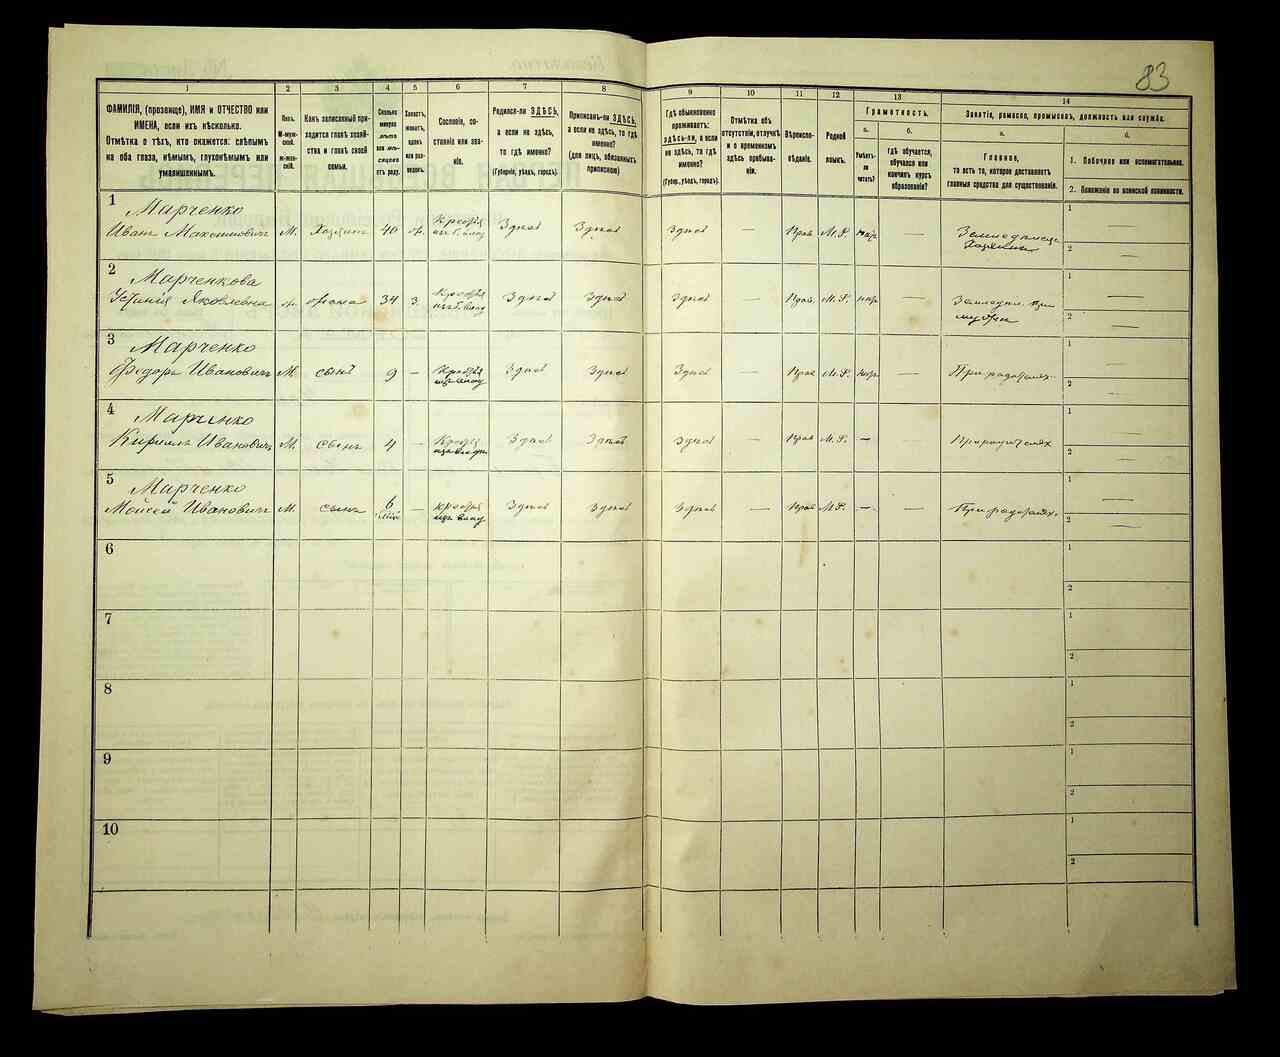 83
1
2
3
4
5
6
7
8
9
10
11
12
13
14
ФАМИЛІЯ, (прозвище), ИМЯ и ОТЧЕСТВО или
ИМЕНА, если ихъ нѣсколько.
Отмѣтка о тѣхъ, кто окажется: слѣпымъ
на оба глаза, нѣмымъ, глухонѣмымъ или
умалишеннымъ.
Полъ.
М-муж-
ской.
ж-жен-
скій.
Какъ записанный при-
ходится главѣ хозяй-
ства и главѣ своей
семьи.
Сколько
минуло
лѣтъ
или мѣ-
сяцевъ
отъ роду.
Холостъ,
женатъ,
вдовъ
или раз-
веденъ.
Сословіе, со-
стояніе или зва-
ніе.
Родился-ли ЗДѢСЬ,
а если не здѣсь,
то гдѣ именно?
(Губернія, уѣздъ, городъ).
Приписанъ-ли ЗДѢСЬ,
а если не здѣсь, то гдѣ
именно?
(для лицъ, обязанныхъ
припискою)
Гдѣ обыкновенно
проживаетъ:
здѣсь-ли, а если
не здѣсь, то гдѣ
именно?
(Губер., уѣздъ, городъ).
Отмѣтка объ
отсутствіи, отлучкѣ
и о временномъ
здѣсь пребыва-
ніи.
Вѣроиспо-
вѣданіе.
Родной
языкъ.
Грамотность.
а.
Умѣетъ-
ли
читать?
б.
Гдѣ обучается,
обучался или
кончилъ курсъ
образованія?
Занятіе, ремесло, промыселъ, должность или служба.
а.
Главное,
то есть то, которое доставляетъ
главныя средства для существованія.
б.
1. Побочное или вспомогательное.
2. Положеніе по воинской повинности.
1
Марченко
Иванъ Максимовичъ М. Хозяинъ 40 ж. Здѣсь Здѣсь Здѣсь — Прав М.Р. —
1
2
2
Марченкова
Устинія Яковлевна ж. жена 34 з. Здѣсь Здѣсь Здѣсь — Прав М.Р. —
1
2
3
Марченко
Федоръ Ивановичъ М. сынъ 9 — Здѣсь Здѣсь Здѣсь — Прав М.Р. —
1
2
4
Марченко
Кириллъ Ивановичъ М. сынъ 4 — Здѣсь Здѣсь Здѣсь — Прав М.Р. —
1
2
5
Марченко
Мойсей Ивановичъ М. сынъ 6 — Здѣсь Здѣсь Здѣсь — Прав М.Р. — —
1
2
6
1
2
7
1
2
8
1
2
9
1
2
10
1
2